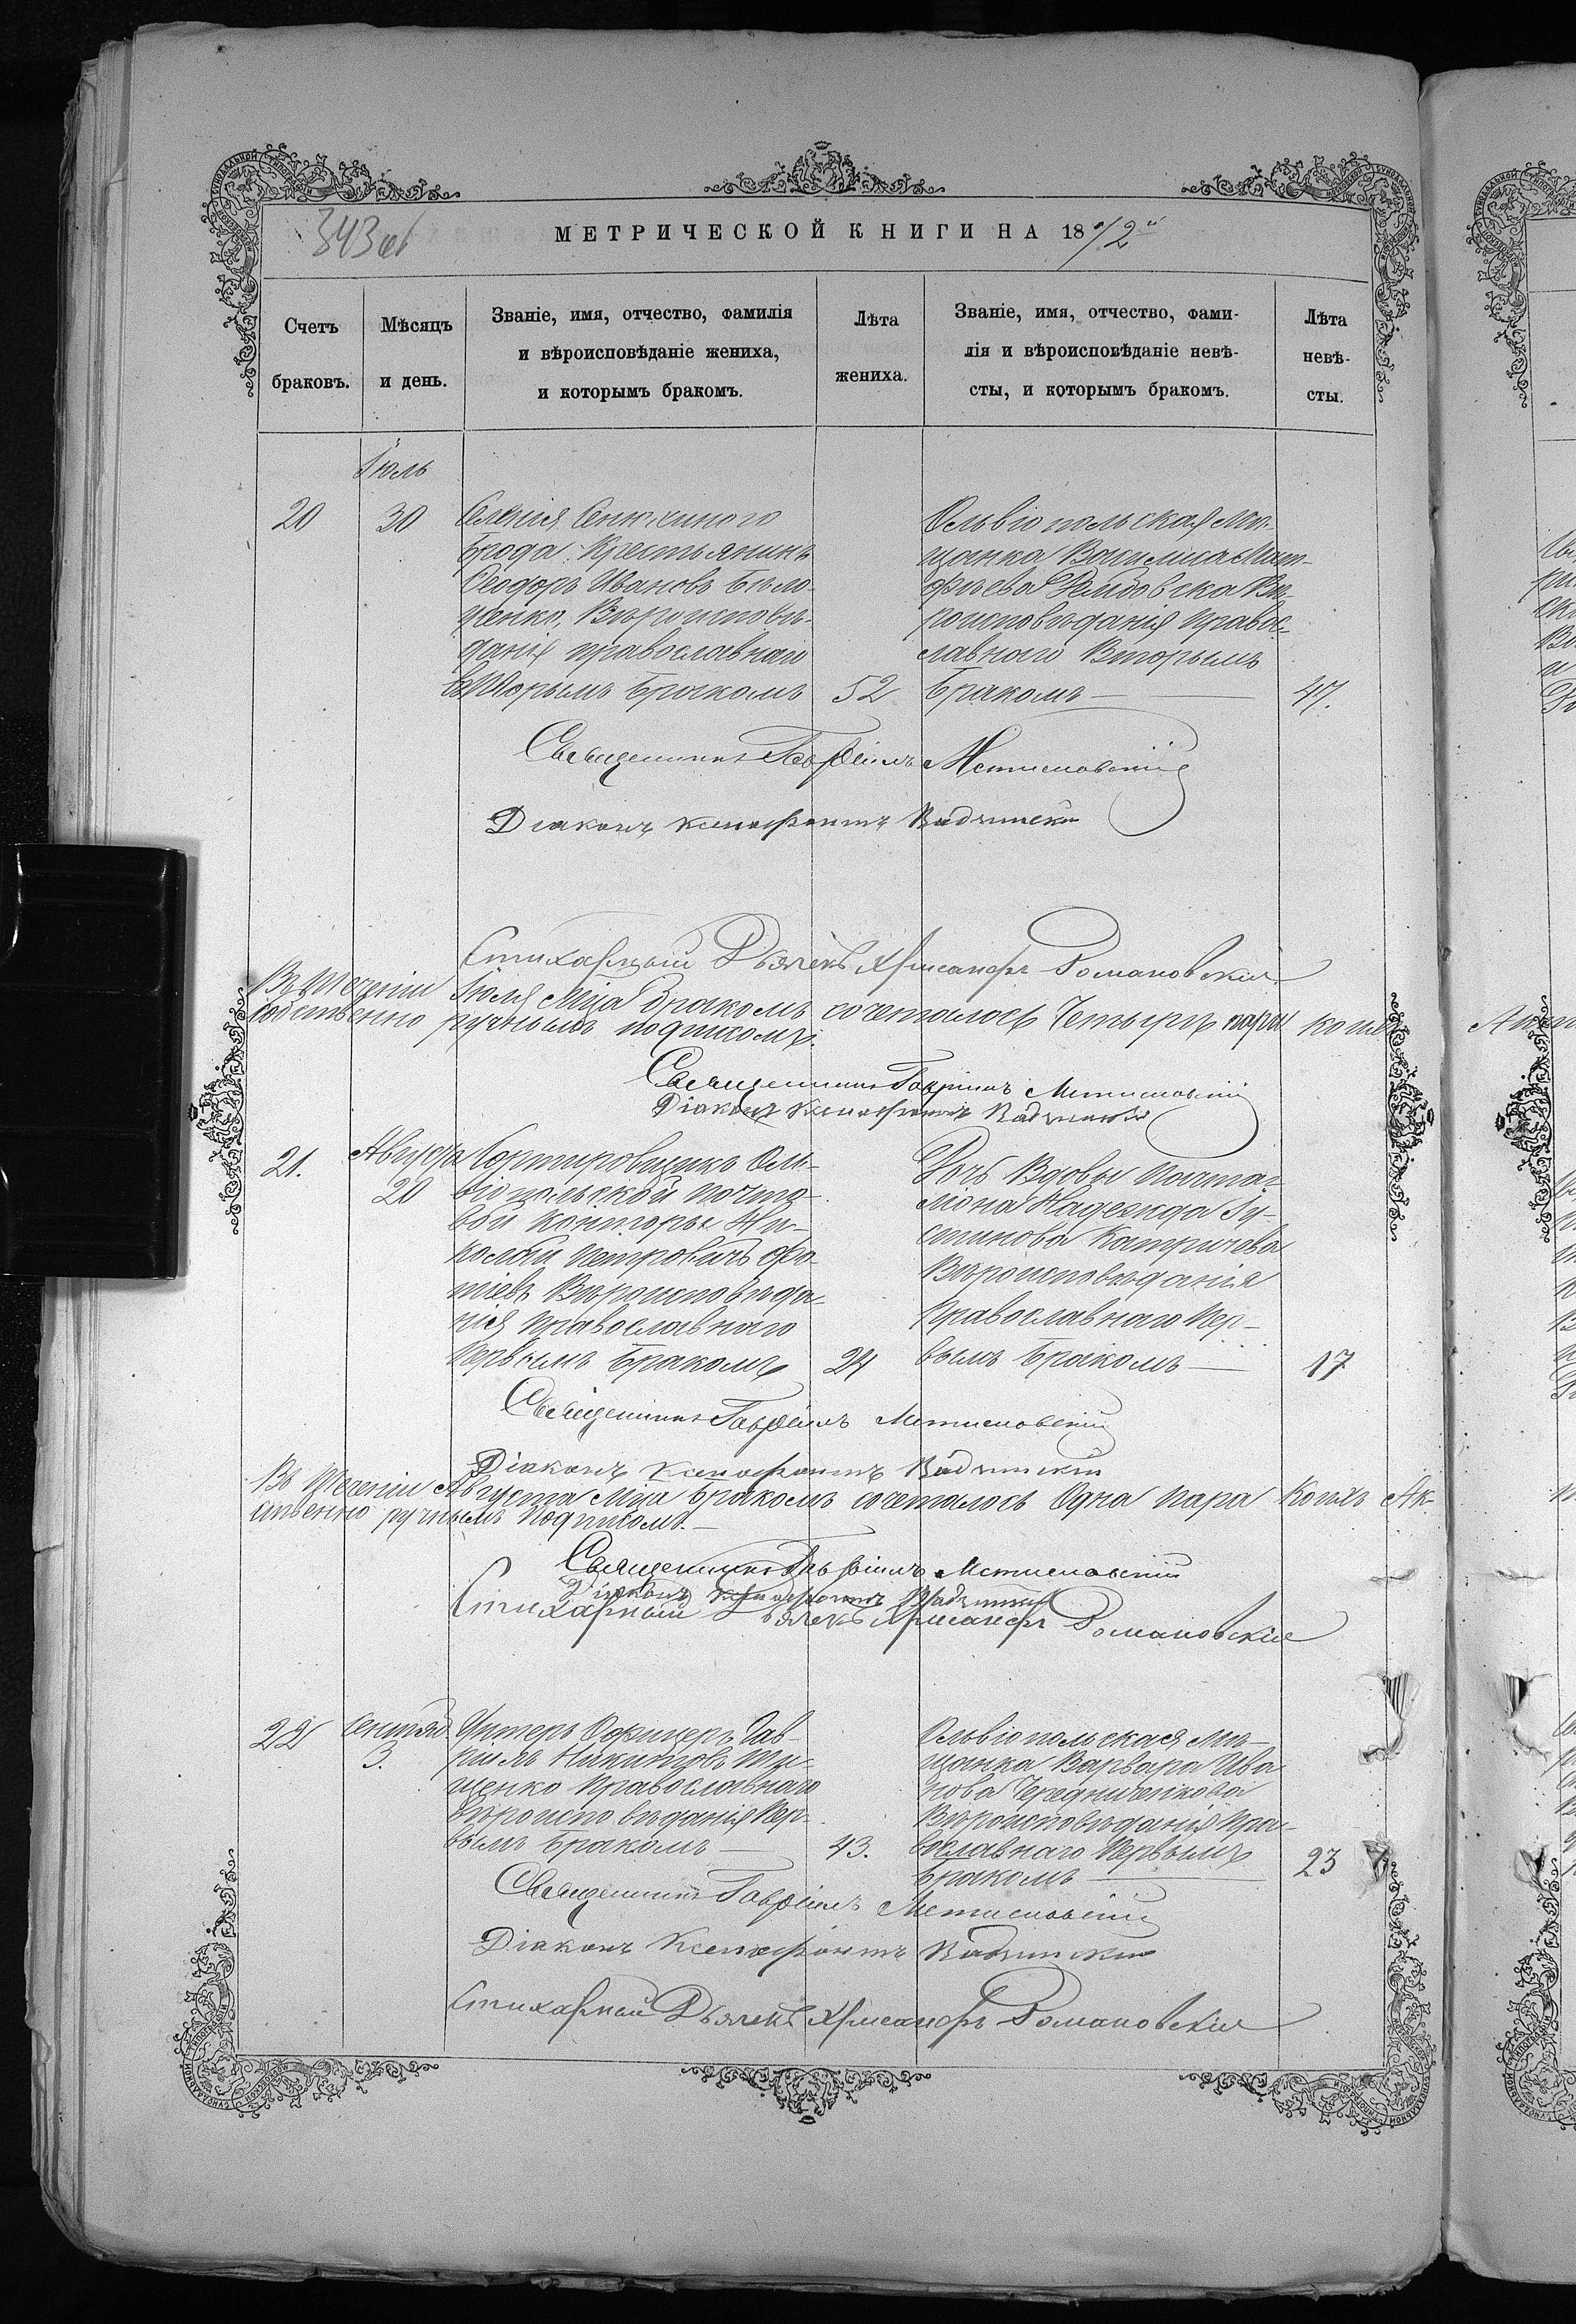 343 об
МЕТРИЧЕСКОЙ КНИГИ НА 1872й
Счетъ браковъ.
Мѣсяцъ и день.
Званіе, имя, отчество, фамилія
и вѣроисповѣданіе жениха,
и которымъ бракомъ.
Лѣта жениха.
Званіе, имя, отчество, фами-
лія и вѣроисповѣданіе невѣ-
сты, и которымъ бракомъ.
Лѣта невѣ-
сты.
Іюль
20
30
Селенія Сенюхиного
Брода Крестьянинъ
Ѳеодоръ Ивановъ Било-
ченко, Вѣроисповѣ-
данія православнаго
Вторымъ Бракомъ
52
Ольвіопольская Мѣ-
щанка Василиса Мат-
фѣева Вѣ-
роисповѣданія Правос-
лавного Вторымъ
Бракомъ —
47.
Священникъ Гавріилъ Мстиславскій
Діаконъ Ксенофонтъ
Стихарный Дьячекъ Хрисанфъ Романовскій
Въ теченіи Іюля Мца Бракомъ сочеталось Четыре пары копія
собственно ручнымъ подписомъ.
Священникъ Гавріилъ Мстиславскій
Діаконъ Ксенофонтъ
21.
Августа
20
Сортировщикъ Оль-
віопольской Почто-
вой Конторы Ни-
колай Петровичъ Фо-
тіевъ Вѣроисповѣда-
нія Православнаго
Первымъ Бракомъ
24
Дочь Вдовы Почта-
Надежда Іу-
стинова
Вѣроисповѣданія
Православнаго Пер-
вымъ Бракомъ —
17
Священникъ Гавріилъ Мстиславскій
Діаконъ Ксенофонтъ
Въ теченіи Августа Мца Бракомъ сочеталось Одна пара
ственно ручнымъ Подписомъ. —
Священникъ Гавріилъ Мстиславскій
Діаконъ Ксенофонтъ
Стихарный Дьячекъ Хрисанфъ Романовскій
22
Сентяб.
3.
Унтеръ Офицеръ Гав-
риилъ Никитовъ Ти-
щенко Православнаго
вѣроисповѣданія Пер-
вымъ Бракомъ —
43.
Ольвіопольская Мѣ-
щанка Варвара Ива
нова Чередниченкова
Вѣроисповѣданія Пра-
вославнаго Первымъ
Бракомъ —
23
Священникъ Гавріилъ Мстиславскій
Діаконъ Ксенофонтъ
Стихарный Дьячекъ Хрисанфъ Романовскій